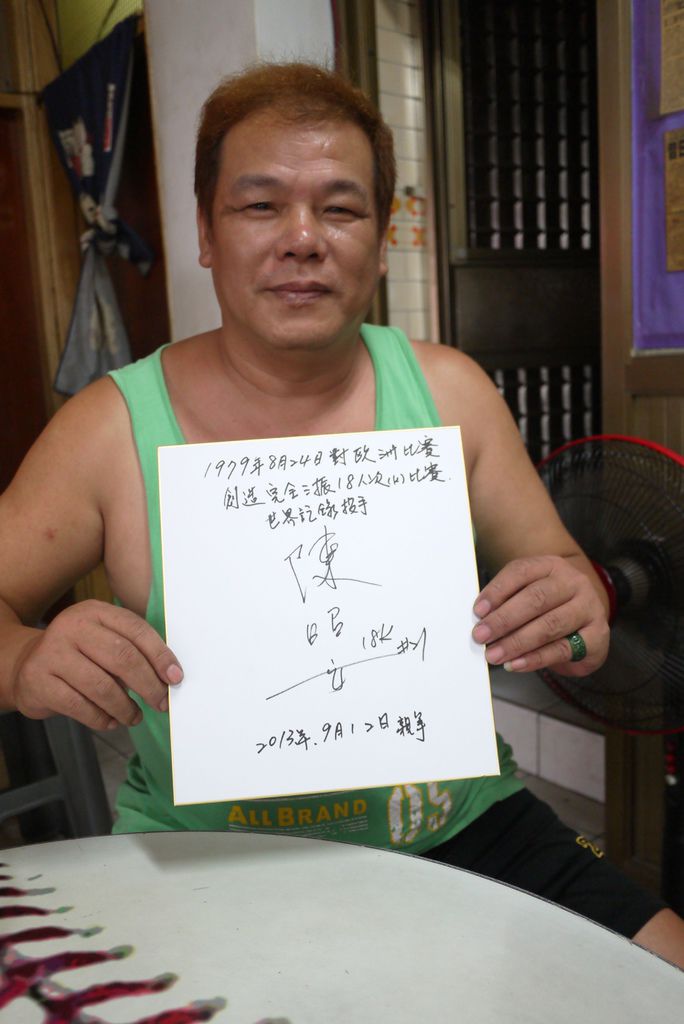 1979年8月24日對歐洲比賽
創造完全三振18人次(K)比賽.
世界記錄投手
陳
昭
安
18K #21
2013年.9月12日親筆
ALL BRAND
05